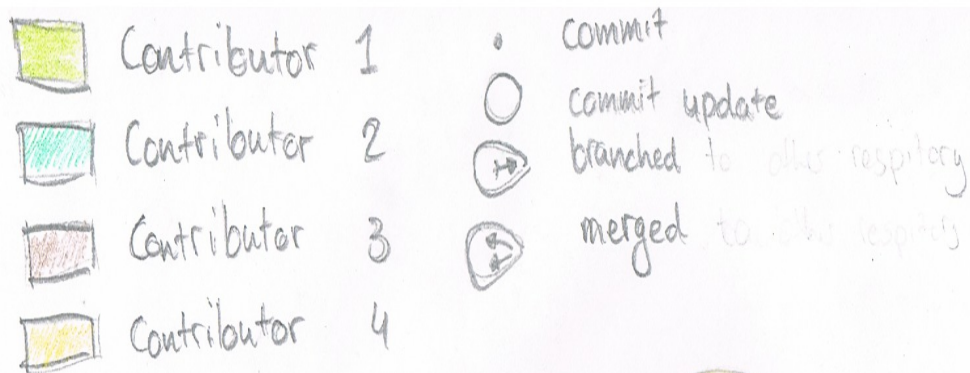 Contributor 1
Contributor 2
Contributor 3
Contributor 4
commit
commit update
branched to other respitory
merged to other respitory